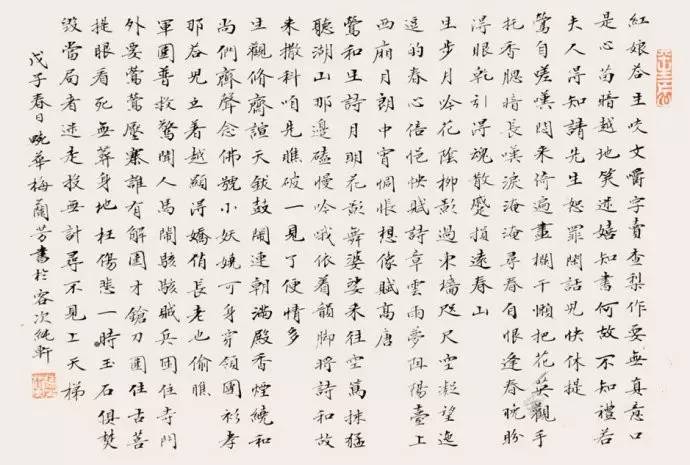 紅娘答生咬文嚼字賣查梨作耍無真意口
是心苗暗越地笑迷嬉知書何故不知禮若
夫人得知請先生恕罪閑話兒快休提
鶯自嗟嘆悶來倚遍畫欄干懶把花英觀手
托香腮暗長嘆淚淹淹尋春有恨逢春晚盼
得眼乾引得魂散蹙損遠春山
生步月吟花陰柳影過東墻咫尺空凝望迤
逗的春心倍悒怏賦詩章雲雨夢阻陽臺上
西廂月朗中宵惆悵想像賦高唐
鶯和生詩月明花影舞婆娑來往空蕩抹猛
聽湖山那邊磕慢吟哦依着韻脚將詩和故
來撒科咱先瞧破一見了便情多
生觀修齋諠天鈸鼓鬧連朝滿殿香煙繞和
尚們齊聲念佛號小妖嬈可身穿領團衫孝
那答兒立着越顯得嬌俏長老也偷瞧
軍圍普救驚聞人馬鬧駭駭賊兵圍住寺門
外要鶯鶯壓寨誰有解圍才鎗刀圍住古菩
提眼看死無葬身地枉傷悲一時玉石俱焚
毀當局者迷走投無計尋不見上天梯
戊子春日畹華梅蘭芳書於容次純軒